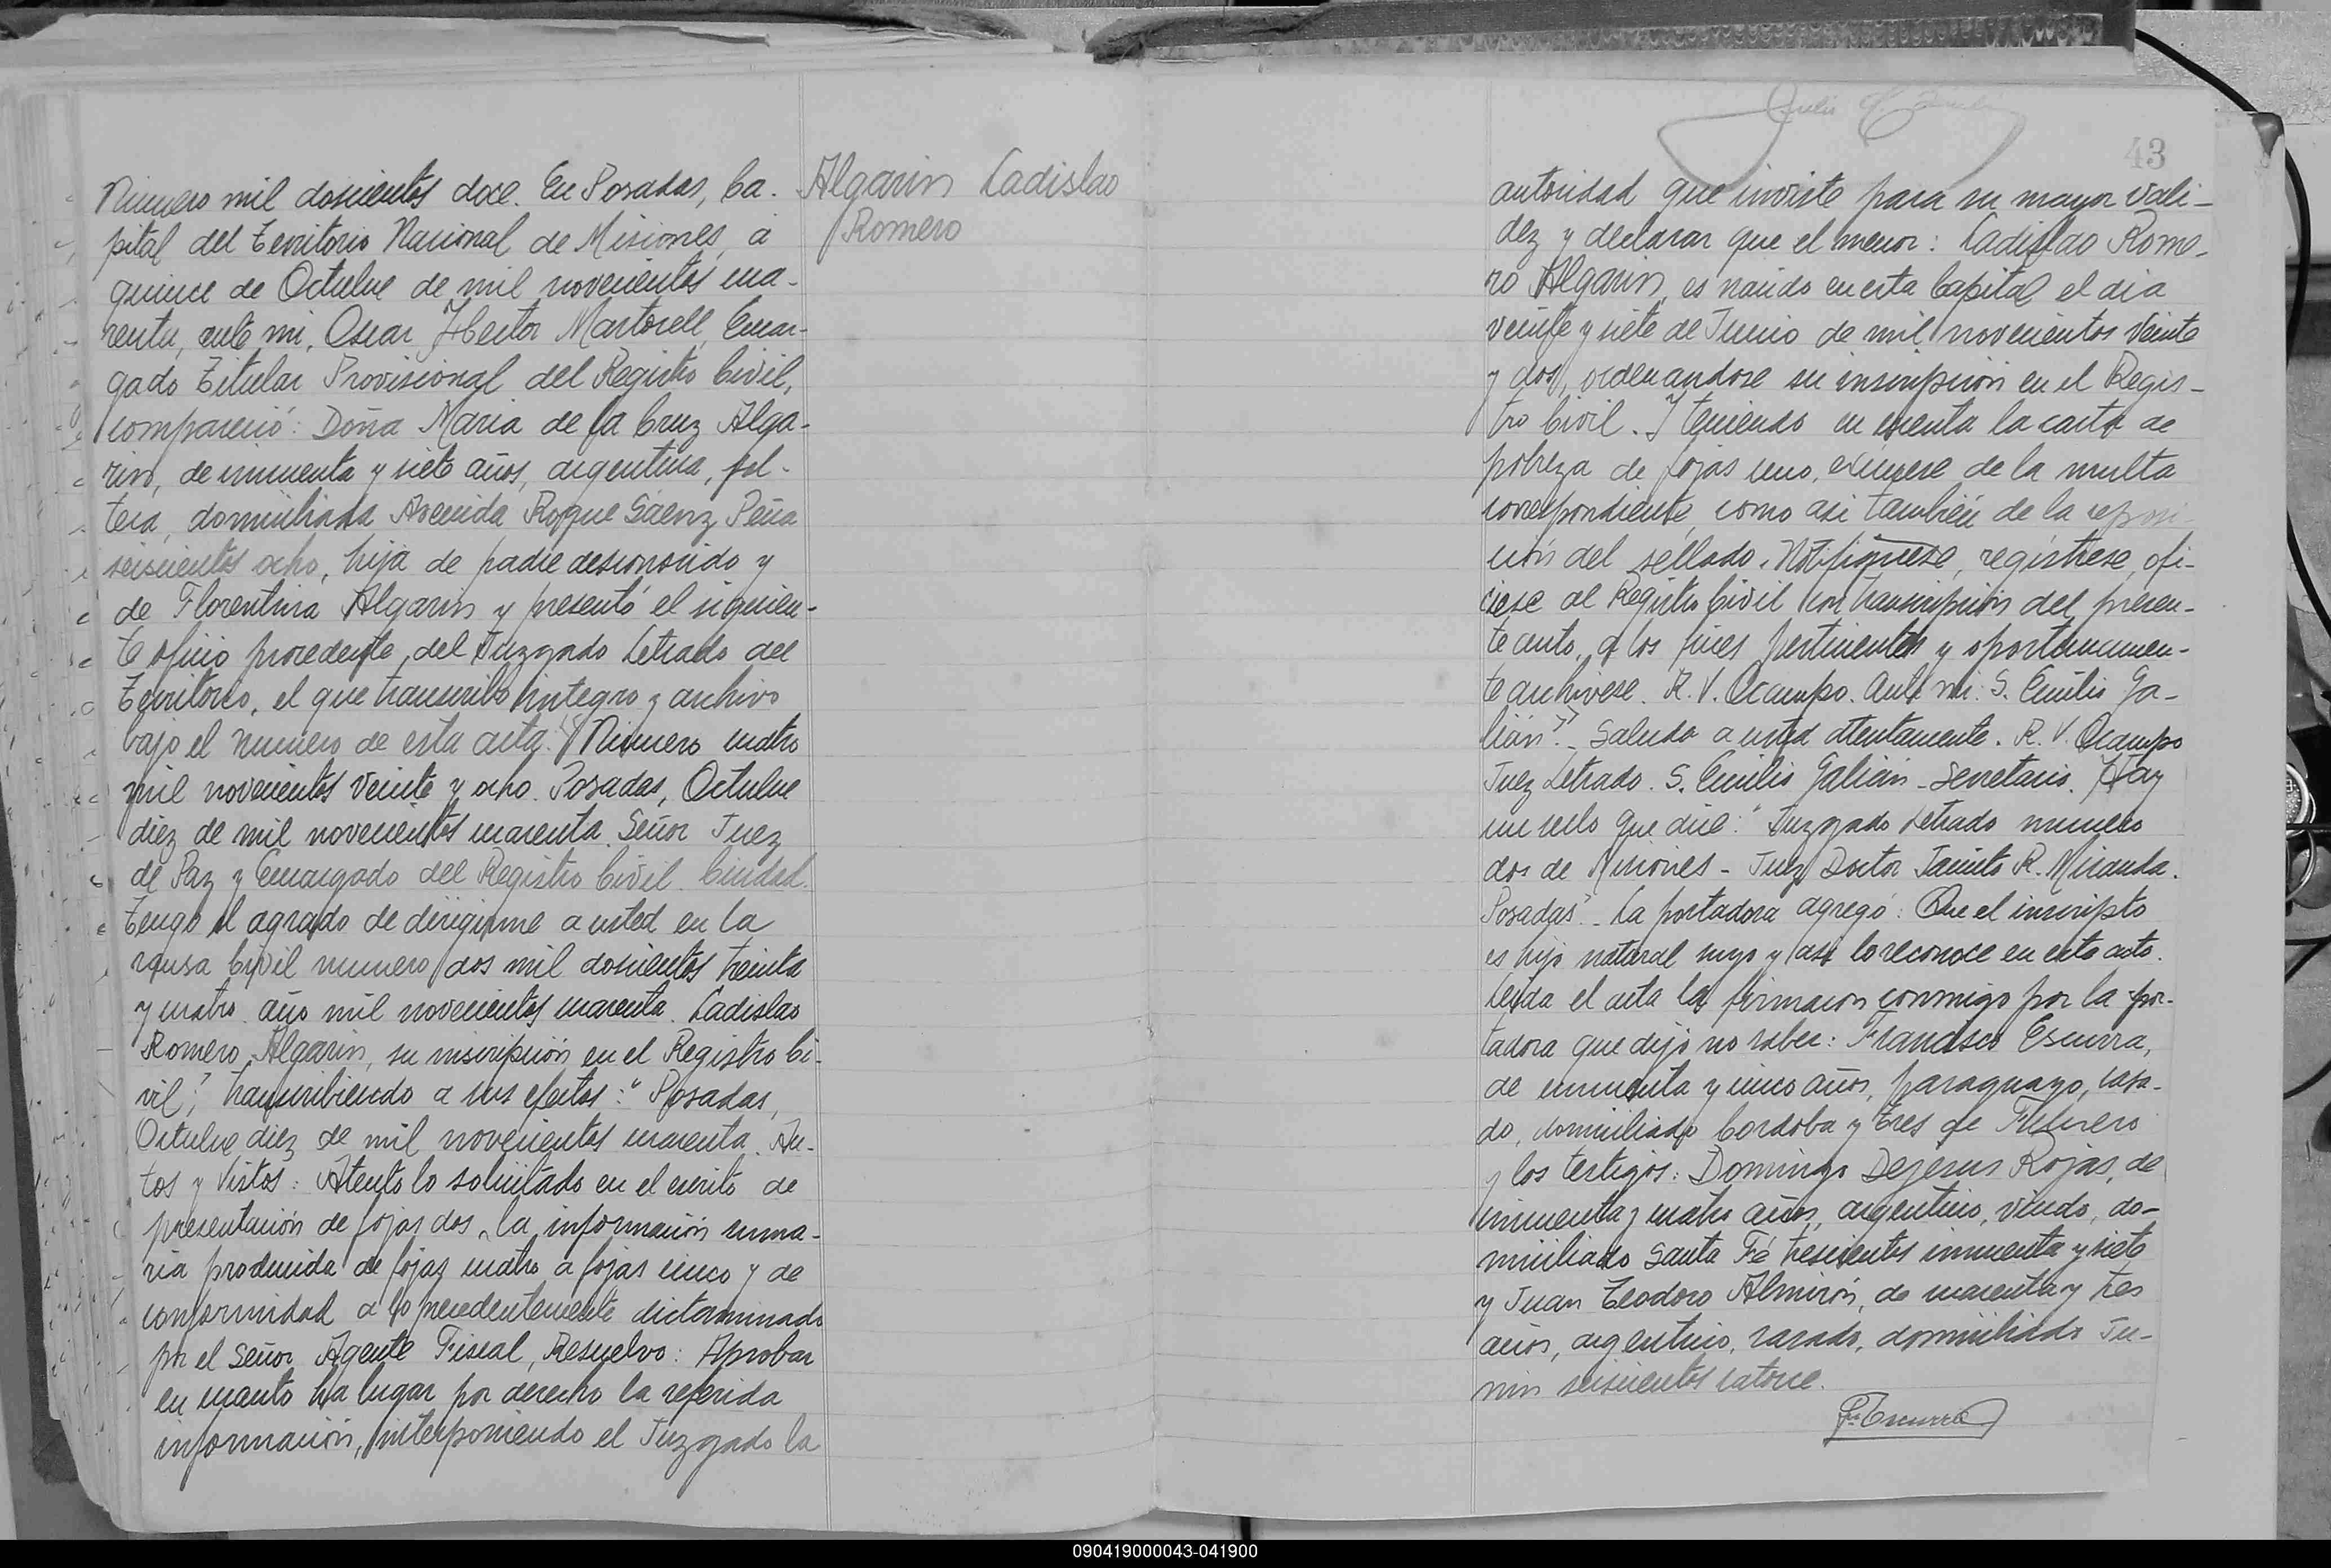 Número mil doscientos doce. En Posadas, Ca-
pital del Territorio Nacional de Misiones, a
quince de Octubre de mil novecientos cua-
renta, ante mi, Oscar Hector Martorell, Encar-
gado Titular Provisional del Registro Civil,
compareció: Doña Maria de la Cruz Alga-
rin, de cincuenta y siete años, argentina, sol-
tera, domiciliada Avenida Roque Sáenz Peña
seiscientos ocho, hija de padre desconocido y
de Florentina Algarin y presentó el siguien-
te oficio procedente del Juzgado Letrado del
Territorio, el que transcribo integro y archivo
bajo el numero de esta acta: "Número cuatro
mil novecientos veinte y ocho. Posadas, Octubre
diez de mil novecientos cuarenta. Señor Juez
de Paz y Encargado del Registro Civil. Ciudad.
Tengo el agrado de dirigirme a usted en la
causa Civil numero dos mil doscientos treinta
y cuatro año mil novecientos cuarenta. Ladislao
Romero Algarin, su inscripción en el Registro Ci-
vil", transcribiendo a sus efectos: "Posadas,
Octubre diez de mil novecientos cuarenta. Au-
tos y Vistos: Atento lo solicitado en el escrito de
presentación de fojas dos, la información suma-
ria producida de fojas cuatro a fojas cinco y de
conformidad a lo precedentemente dictaminado
por el Señor Agente Fiscal, Resuelvo: Aprobar
en cuanto ha lugar por derecho la referida
información, interponiendo el Juzgado la
Algarin Ladislao
Romero
43
autoridad que inviste para su mayor vali-
dez y declarar que el menor: Ladislao Rome-
ro Algarin, es nacido en esta Capital el dia
veinte y siete de Junio de mil novecientos veinte
y dos, ordenandose su inscripción en el Regis-
tro Civil. Y teniendo en cuenta la carta de
pobreza de fojas uno, eximese de la multa
correspondiente, como asi también de la reposi-
ción del sellado. Notifiquese, registrese, ofi-
ciese al Registro Civil con transcripción del presen-
te auto, a los fines pertinentes y oportunamen-
te archivese. R. V. Ocampo. Ante mi: S. Emilio Ga-
lián". Saludo a usted atentamente. R. V. Ocampo
Juez Letrado. S. Emilio Galián - Secretario. Hay
un sello que dice: "Juzgado Letrado numero
dos de Misiones - Juez Doctor Jacinto R. Miranda.
Posadas". La portadora agregó: Que el inscripto
es hijo natural suyo y asi lo reconoce en este acto.
Leida el acta la firmaron conmigo por la por-
tadora que dijo no saber: Francisco Escurra,
de cincuenta y cinco años, paraguayo, casa-
do, domiciliado Cordoba y Tres de Febrero
y los testigos: Domingo Dejesus Rojas, de
cincuenta y cuatro años, argentino, viudo, do-
miciliado Santa Fé trescientos cincuenta y siete
y Juan Teodoro Almirón, de cuarenta y tres
años, argentino, casado, domiciliado Ju-
nin seiscientos catorce.
Fco Escurra
090419000043-041900